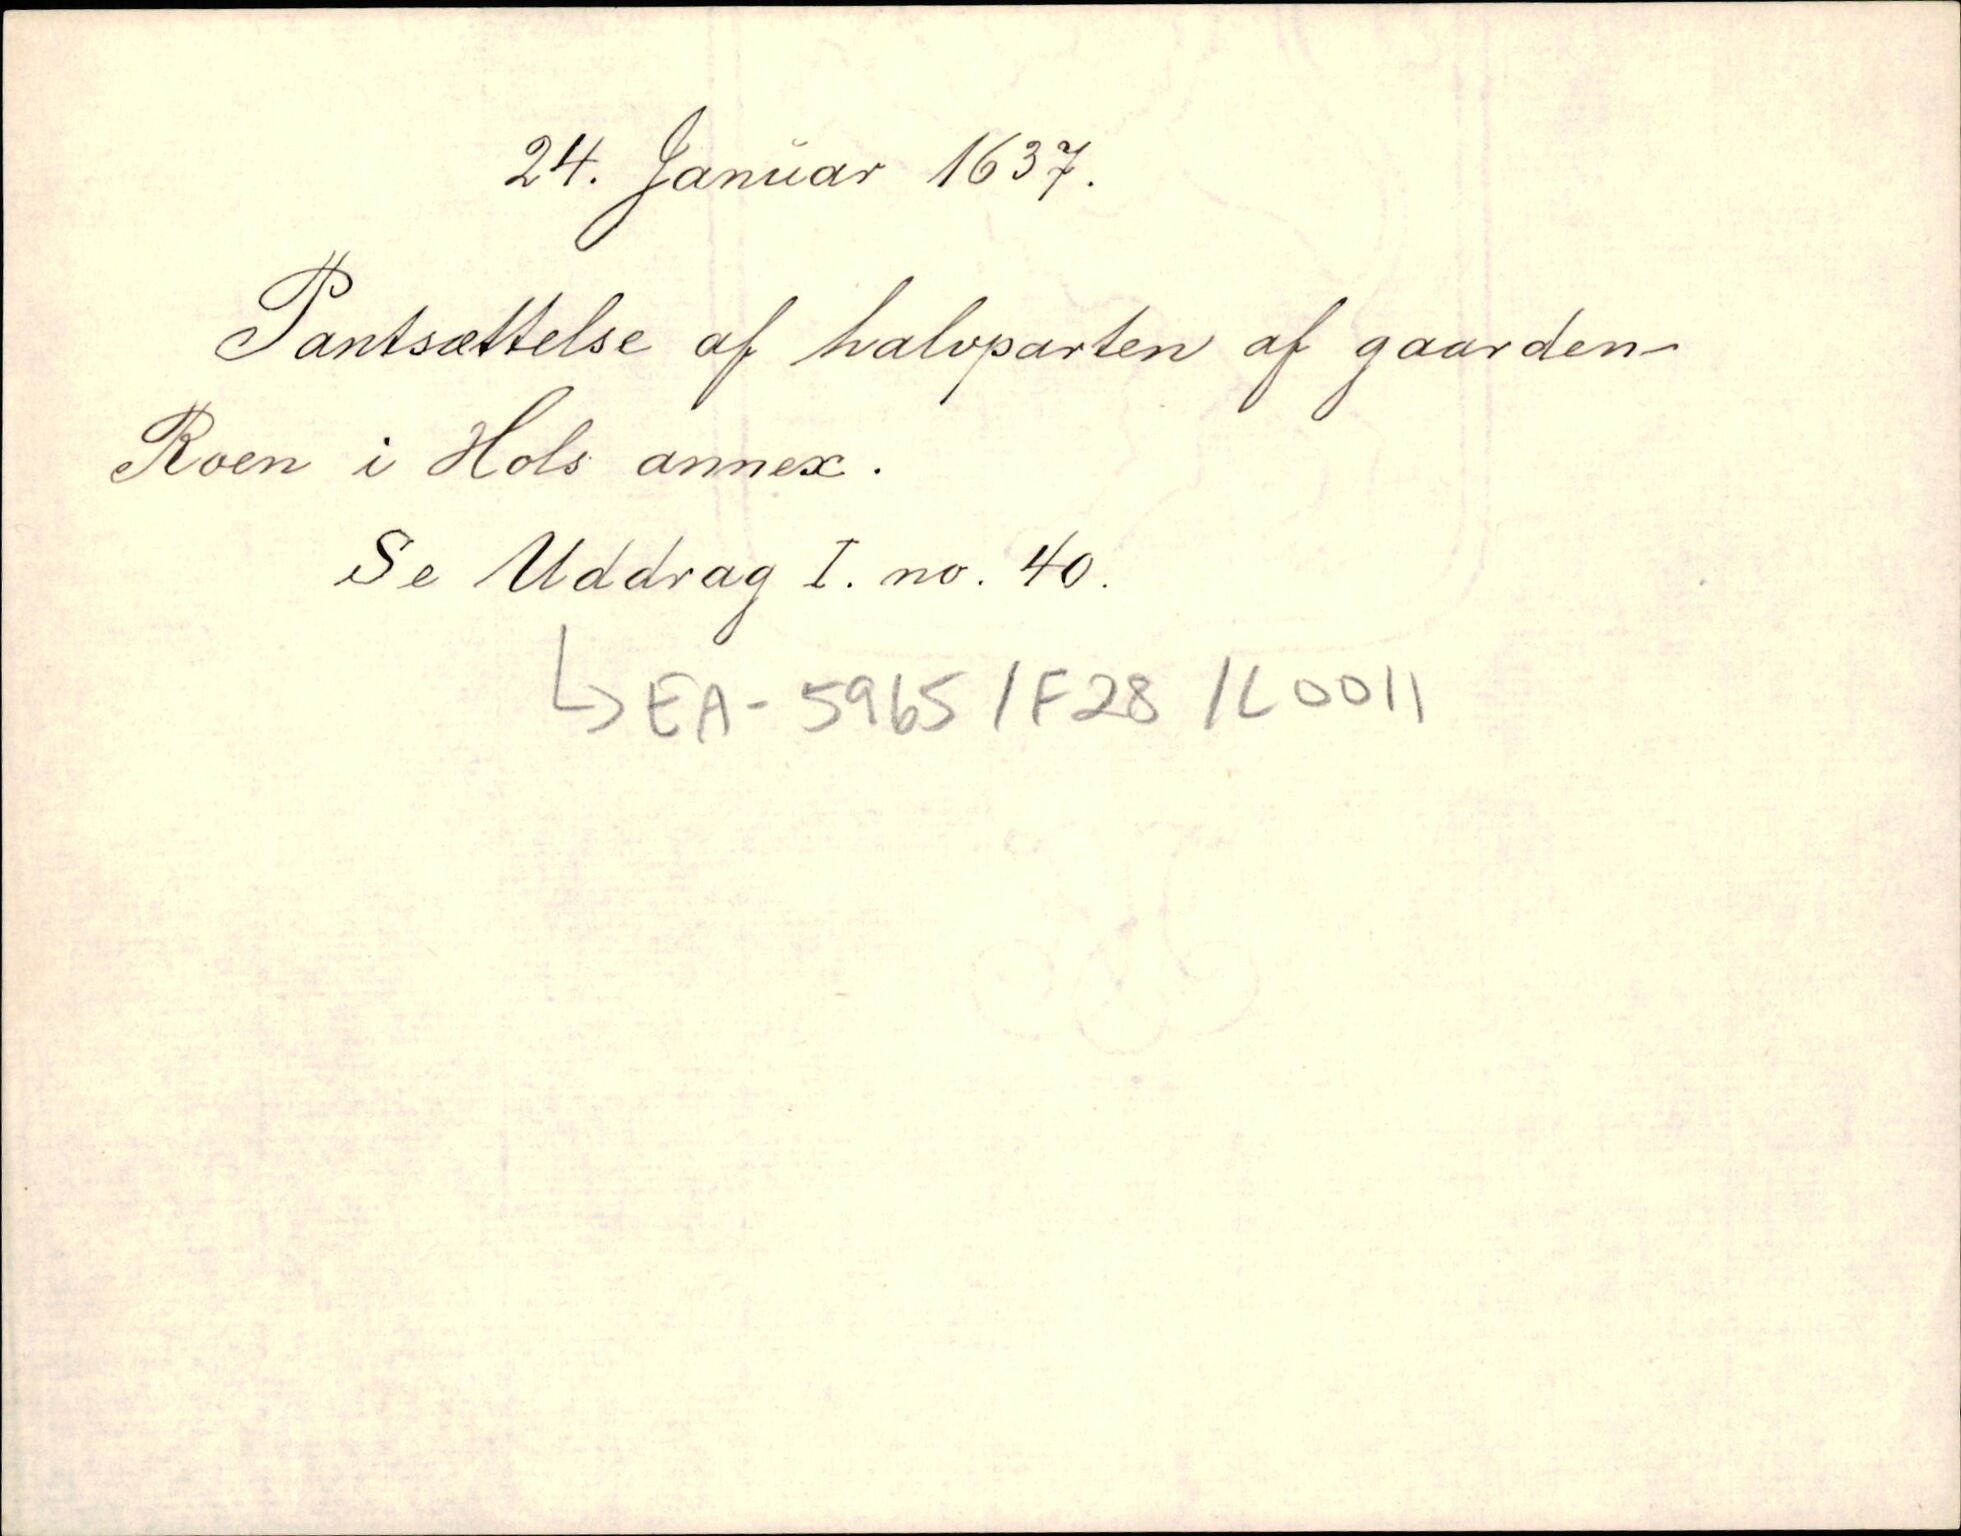 24. Januar 1637.
Pantsættelse af halvparten af gaarden
Roen i Hols annex.
Se Uddrag I. no. 40.
↳ EA-5965/F28/L0011